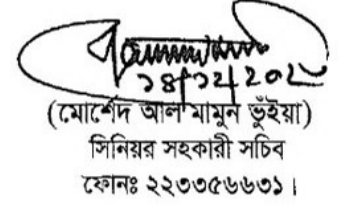 ১৪/১২/২০২
(মোর্শেদ আল মামুন ভুঁইয়া)
সিনিয়র সহকারী সচিব
ফোনঃ ২২৩৩৫৬৬৩১।